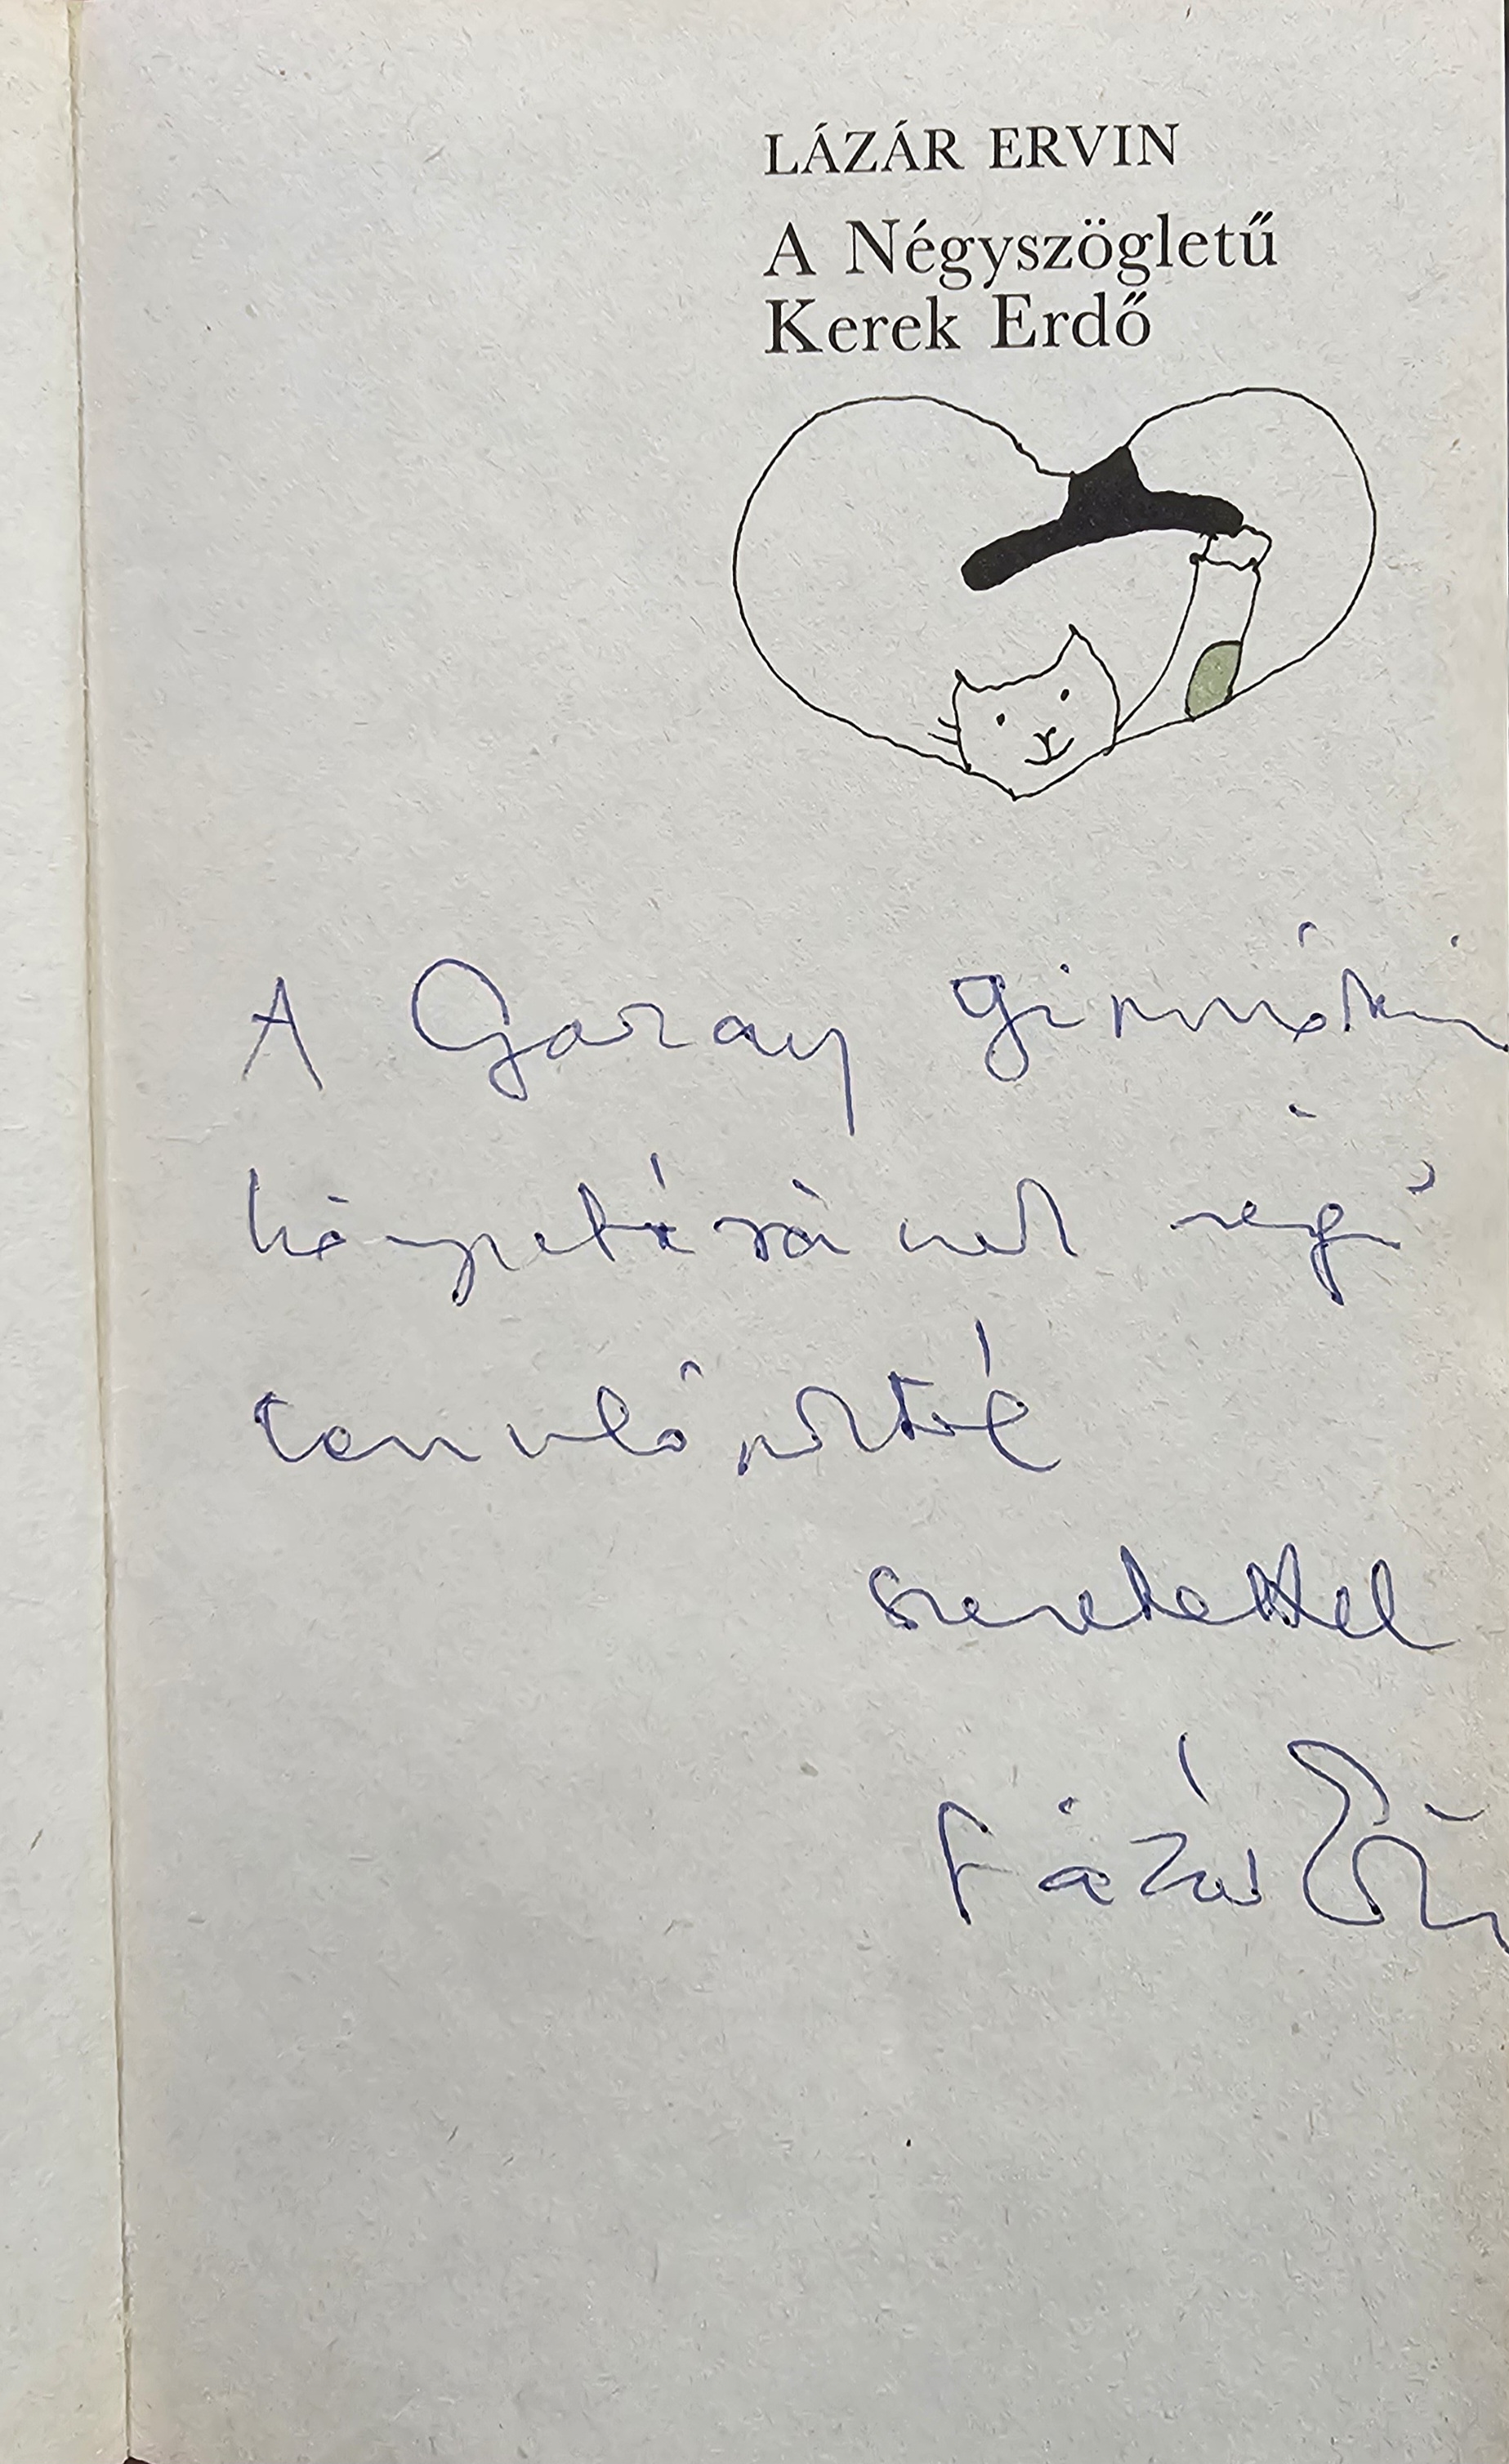 LÁZÁR ERVIN
A Négyszögletű
Kerek Erdő
A Garay Gimnázium
könyvtárának régi
tanulójuktól
szeretettel
Lázár Ervin